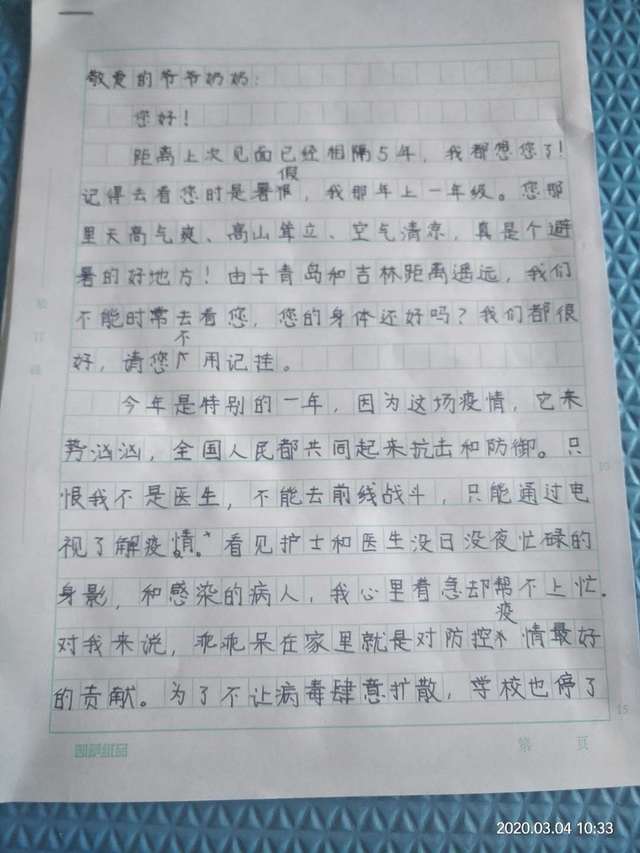 敬爱的爷爷奶奶:
您好!
距离上次见面已经相隔5年,我都想您了!
记得去看您时是暑假,我那年上一年级。您那
里天高气爽、高山耸立、空气清凉,真是个避
暑的好地方!由于青岛和吉林距离遥远,我们
不能时常去看您,您的身体还好吗?我们都很
好,请您不用记挂。
今年是特别的一年,因为这场疫情,它来
势汹汹,全国人民都共同起来抗击和防御。只
恨我不是医生,不能去前线战斗,只能通过电
视了解疫情。看见护士和医生没日没夜忙碌的
身影,和感染的病人,我心里着急却帮不上忙。
对我来说,乖乖呆在家里就是对防控疫情最好
的贡献。为了不让病毒肆意扩散,学校也停了
15
第 页
2020.03.04 10:33